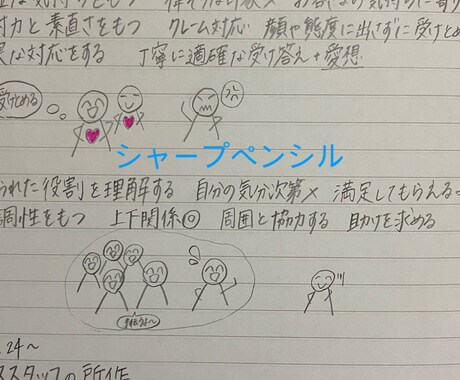 力と素直さをもつ クレーム対応 顔や態度に出さずに受けとめ
な対応をする 丁寧に適確な受け答え+愛想
受けとめる
シャープペンシル
られた役割を理解する 自分の気分次第× 満足してもらえる
調性をもつ 上下関係◎ 周囲と協力する 助けを求める
24~
スタッフの所作